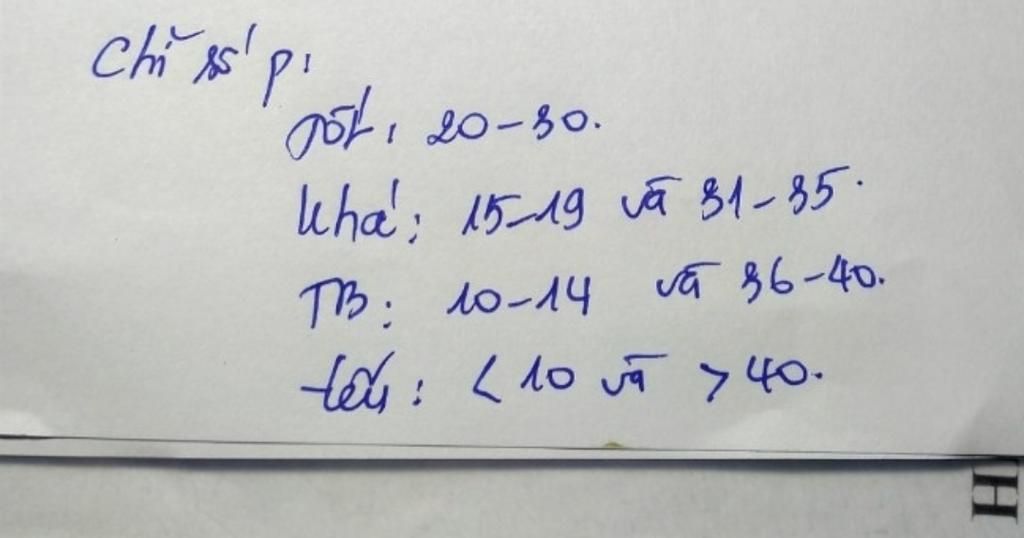 Chỉ số P:
Tốt: 20-30.
Khá: 15-19 và 31-35.
TB: 10-14 và 36-40.
<10 và >40.
H